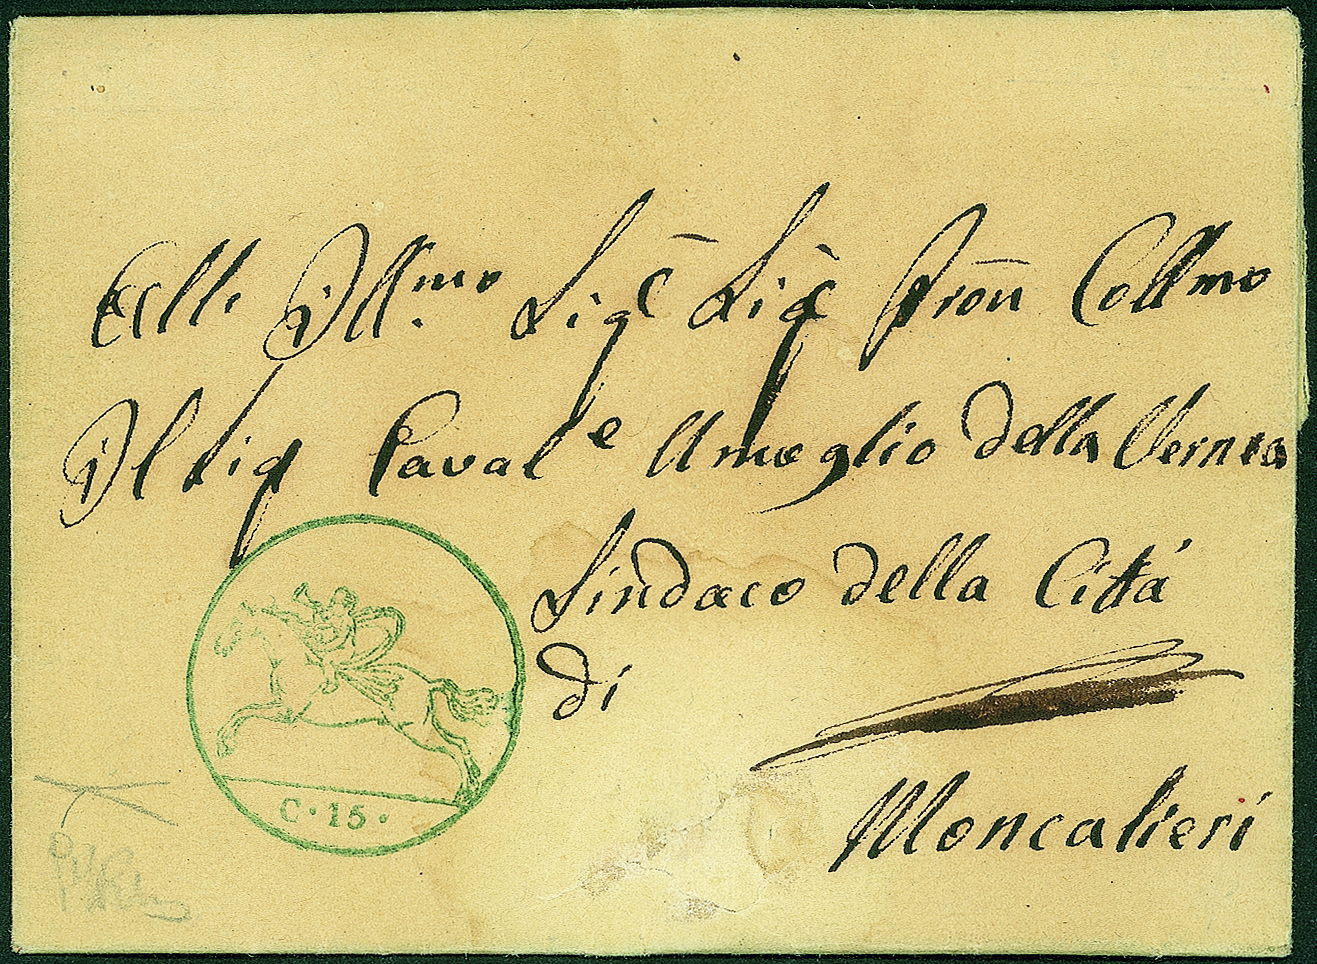 All Ill.mo Sigr Sigr Pron Collmo
Il Sig Cavale Umoglio della Vernea
Sindaco della Cittá
di
Moncalieri
C · 15 ·